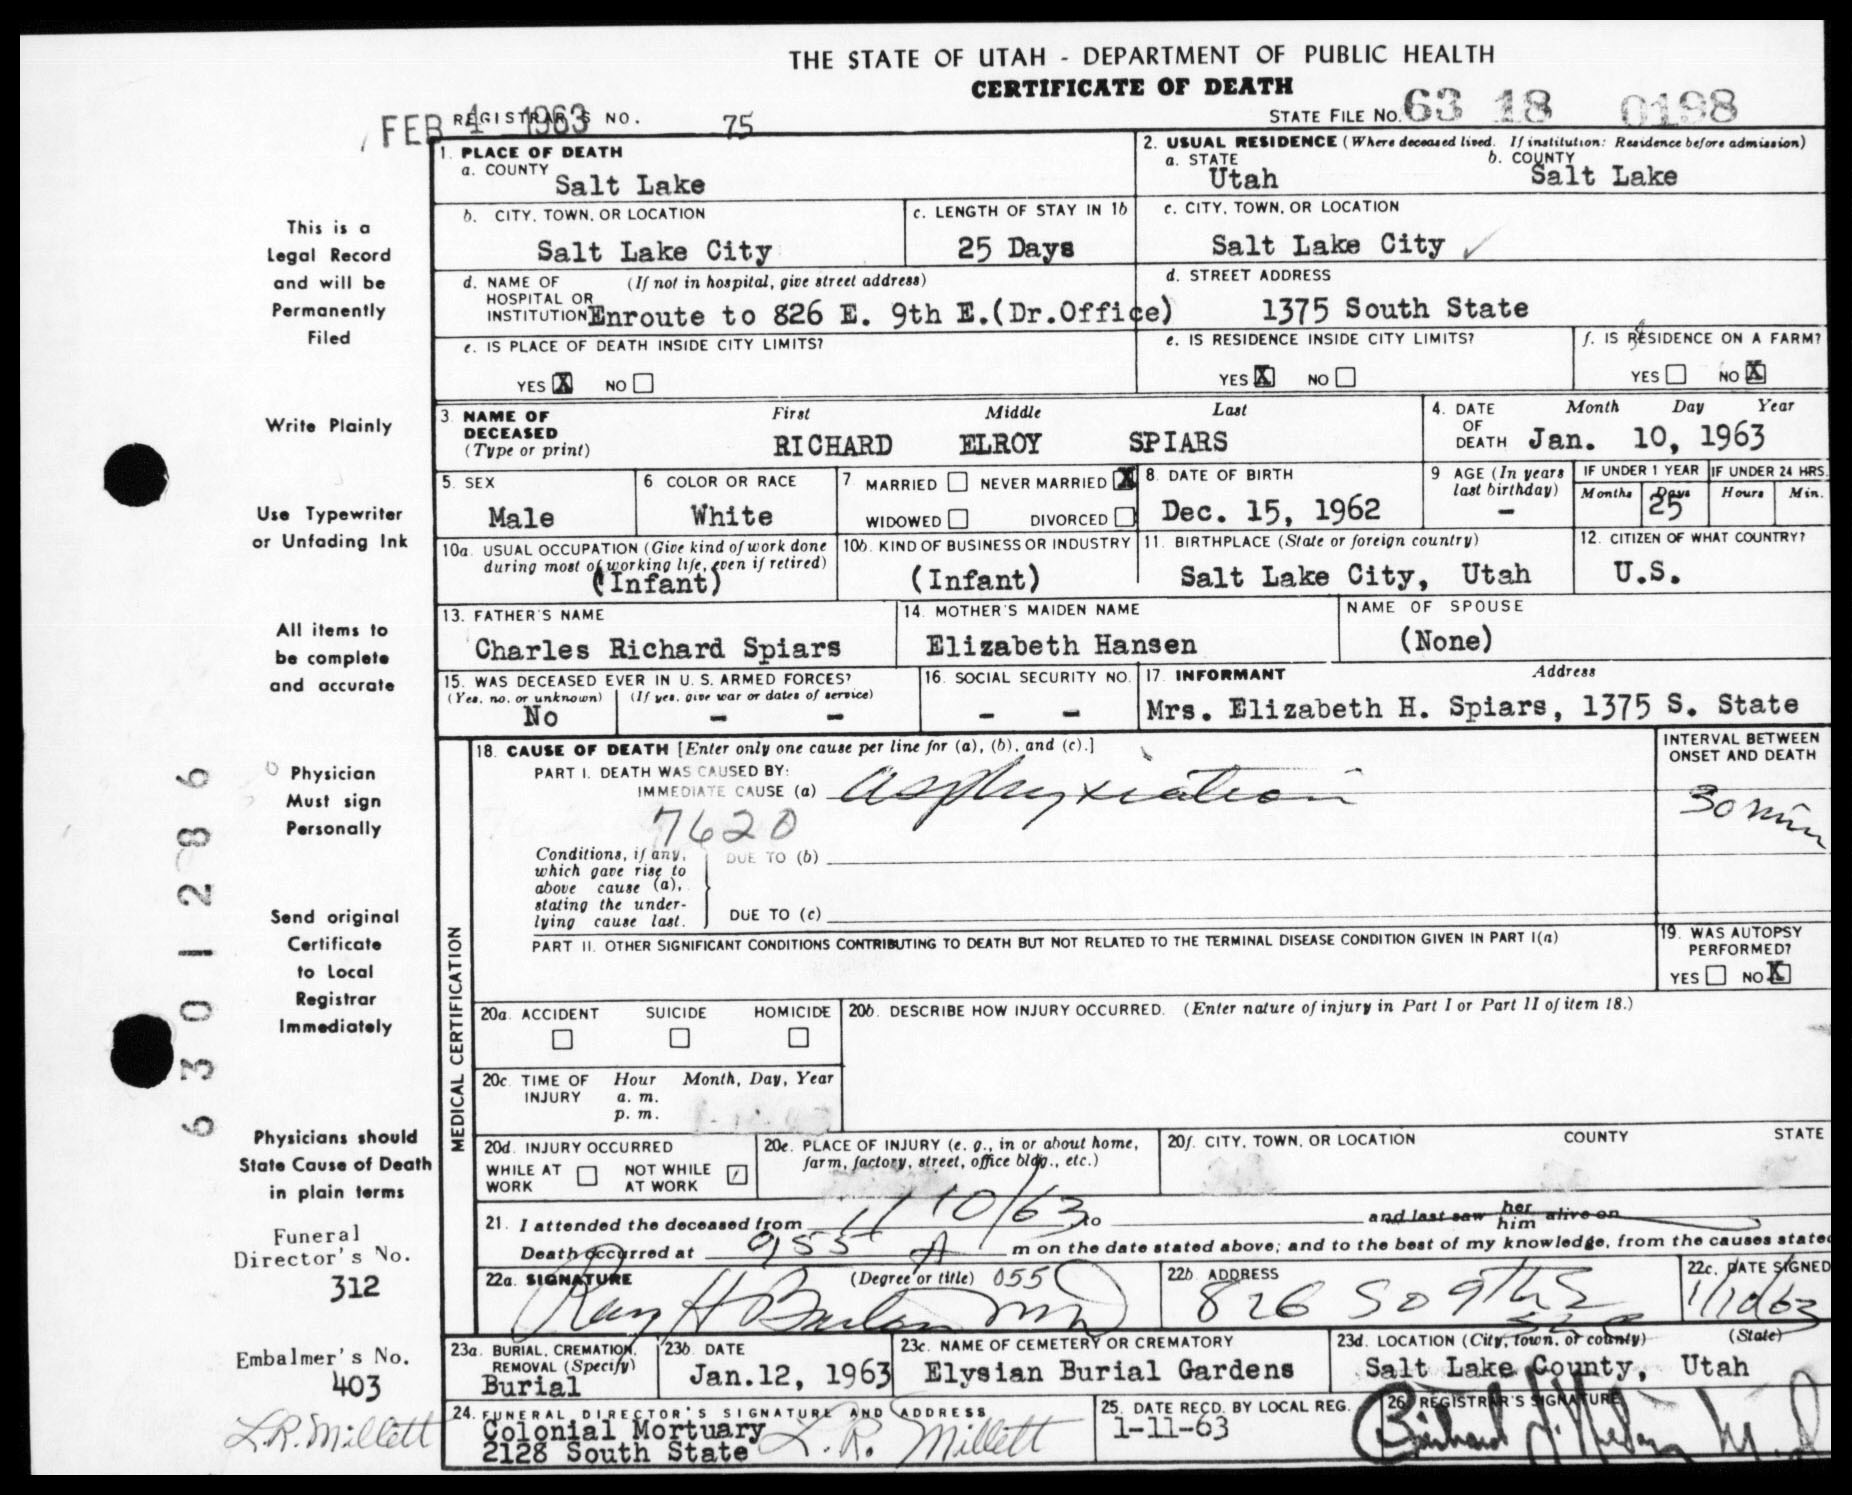 THE STATE OF UTAH - DEPARTMENT OF PUBLIC HEALTH
CERTIFICATE OF DEATH
FEB 4 1963 REGISTRAR'S NO. 75 STATE FILE NO. 63 18 0198
1. PLACE OF DEATH
a. COUNTY Salt Lake
2. USUAL RESIDENCE (Where deceased lived. If institution: Residence before admission)
a. STATE Utah b. COUNTY Salt Lake
b. CITY, TOWN, OR LOCATION Salt Lake City
c. LENGTH OF STAY IN 1b 25 Days
c. CITY, TOWN, OR LOCATION Salt Lake City
d. NAME OF HOSPITAL OR INSTITUTION (If not in hospital, give street address) Enroute to 826 E. 9th E.(Dr.Office)
d. STREET ADDRESS 1375 South State
e. IS PLACE OF DEATH INSIDE CITY LIMITS? YES X NO
e. IS RESIDENCE INSIDE CITY LIMITS? YES X NO
f. IS RESIDENCE ON A FARM? YES NO X
3. NAME OF DECEASED (Type or print) First Middle Last
RICHARD ELROY SPIARS
4. DATE OF DEATH Month Day Year
Jan. 10, 1963
5. SEX Male
6 COLOR OR RACE White
7 MARRIED NEVER MARRIED X
WIDOWED DIVORCED
8. DATE OF BIRTH Dec. 15, 1962
9 AGE (In years last birthday) -
IF UNDER 1 YEAR Months Days 25
IF UNDER 24 HRS. Hours Min.
10a. USUAL OCCUPATION (Give kind of work done during most of working life, even if retired) (Infant)
10b. KIND OF BUSINESS OR INDUSTRY (Infant)
11. BIRTHPLACE (State or foreign country) Salt Lake City, Utah
12. CITIZEN OF WHAT COUNTRY? U.S.
13. FATHER'S NAME Charles Richard Spiars
14. MOTHER'S MAIDEN NAME Elizabeth Hansen
NAME OF SPOUSE (None)
15. WAS DECEASED EVER IN U. S. ARMED FORCES?
(Yes, no, or unknown) (If yes, give war or dates of service)
No - -
16. SOCIAL SECURITY NO. - -
17. INFORMANT Address
Mrs. Elizabeth H. Spiars, 1375 S. State
MEDICAL CERTIFICATION
18. CAUSE OF DEATH [Enter only one cause per line for (a), (b), and (c).]
PART I. DEATH WAS CAUSED BY:
IMMEDIATE CAUSE (a) asphyxiation
7620
INTERVAL BETWEEN ONSET AND DEATH
30 min
Conditions, if any, which gave rise to above cause (a), stating the under-lying cause last.
DUE TO (b)
DUE TO (c)
PART II. OTHER SIGNIFICANT CONDITIONS CONTRIBUTING TO DEATH BUT NOT RELATED TO THE TERMINAL DISEASE CONDITION GIVEN IN PART I(a)
19. WAS AUTOPSY PERFORMED?
YES NO X
20a. ACCIDENT SUICIDE HOMICIDE
20b. DESCRIBE HOW INJURY OCCURRED. (Enter nature of injury in Part I or Part II of item 18.)
20c. TIME OF INJURY Hour Month, Day, Year
a. m.
p. m.
20d. INJURY OCCURRED
WHILE AT WORK NOT WHILE AT WORK
20e. PLACE OF INJURY (e. g., in or about home, farm, factory, street, office bldg., etc.)
20f. CITY, TOWN, OR LOCATION COUNTY STATE
21. I attended the deceased from 1/10/63 to and last saw her him alive on
Death occurred at 955 A m on the date stated above; and to the best of my knowledge, from the causes stated
22a. SIGNATURE (Degree or title) 055
Ray H MD
22b. ADDRESS 826 So 9th E
SLC
22c. DATE SIGNED 1/10/63
23a. BURIAL, CREMATION, REMOVAL (Specify) Burial
23b. DATE Jan.12, 1963
23c. NAME OF CEMETERY OR CREMATORY Elysian Burial Gardens
23d. LOCATION (City, town, or county) (State)
Salt Lake County, Utah
24. FUNERAL DIRECTOR'S SIGNATURE AND ADDRESS
Colonial Mortuary
2128 South State L. R. Millett
25. DATE RECD. BY LOCAL REG. 1-11-63
26. REGISTRAR'S SIGNATURE
This is a
Legal Record
and will be
Permanently
Filed
Write Plainly
Use Typewriter
or Unfading Ink
All items to
be complete
and accurate
Physician
Must sign
Personally
Send original
Certificate
to Local
Registrar
Immediately
Physicians should
State Cause of Death
in plain terms
Funeral
Director's No.
312
Embalmer's No.
403
L.R. Millett
6301286